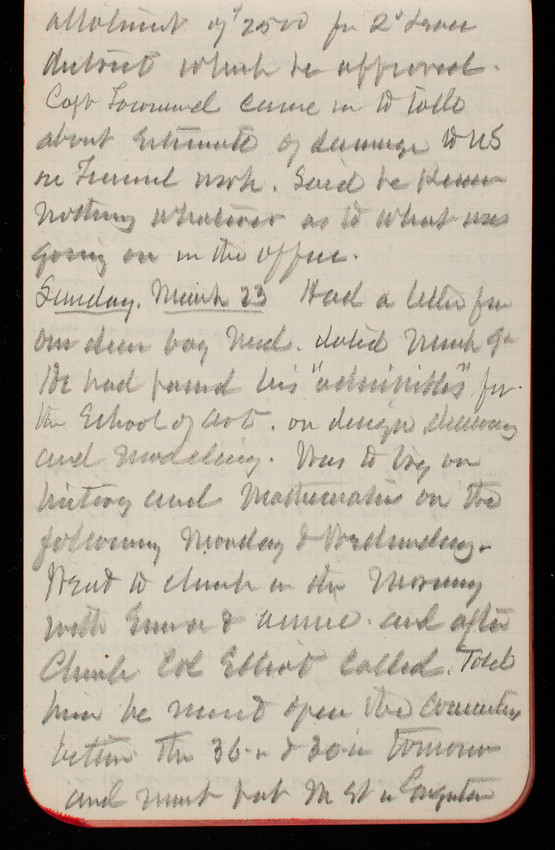 allotment of $2500 for 2d
district which he approved.
Capt Townsend came in to talk
about Estimate of damage to US
on Tunnel work. Said he knew
nothing whatever as to what was
going on in the office.
Sunday. March 23 Had a letter from
our dear boy Ned. dated March 9th
He had passed his "admissibles" for
the School of Art. on design, drawing
and modeling. Was to try on
history and Mathematics on the
following Monday & Wednesday.
Went to church in the Morning
with Emma & Annie. and after
Church Col Elliot Called. Told
him he must open the connection
between the 36-in & 30-in tomorrow
and must put M St in